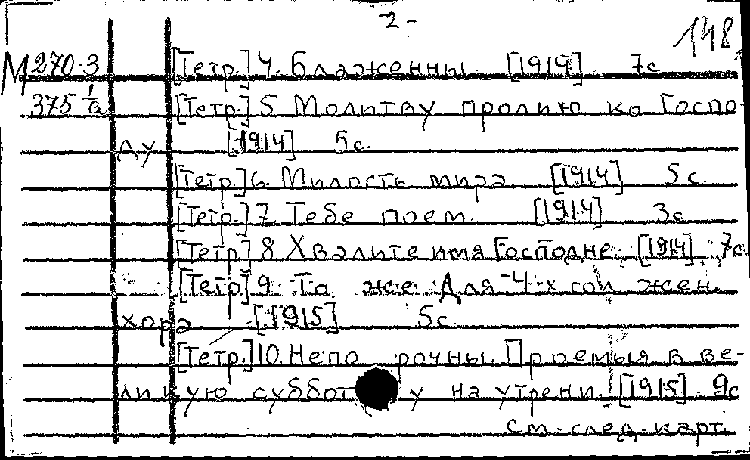 -2-
148
М270-3 [Тетр.] 4. Блаженны [1914] 7с
375 1а [Тетр.] 5 Молитву пролию ко Госпо-
ду [1914] 5с.
[Тетр.] 6. Милость мира [1914] 5с.
[Тетр.] 7. Тебе поем. [1914] 3с
[Тетр.] 8 Хвалите имя Господне. [1914] 7с.
[Тетр.] 9. То же. Для 4-х гол жен.
хора [1915] 5с
[Тетр.] 10. Непорочны. Поемыя в ве-
ликую субботу на утрени. [1915] 9с
см. след. карт.